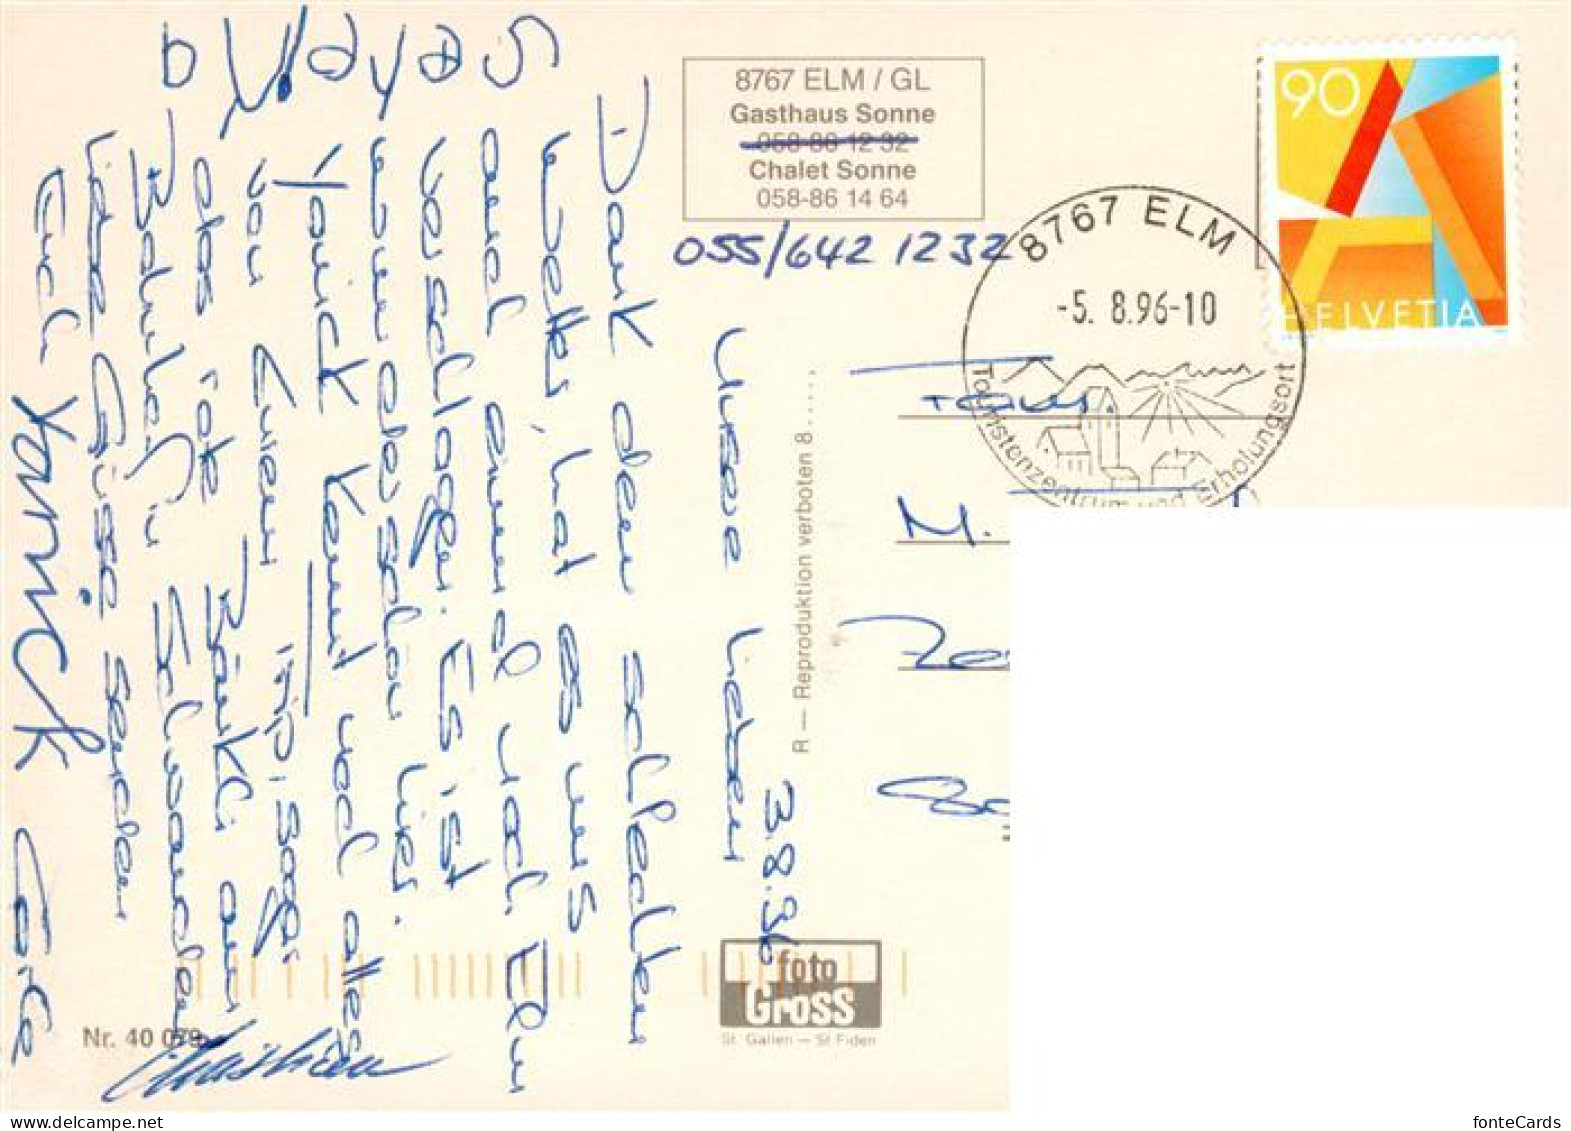 8767 ELM / GL
Gasthaus Sonne
058-86 12 32
Chalet Sonne
058-86 14 64
055/642 12 32
90
HELVETIA
8767 ELM
-5. 8.96-10
Touristenzentrum und Erholungsort
3.8.96
Unsere Lieben
Dank dem schlechten
Wetter, hat es uns
auch einmal nach Elm
verschlagen. Es ist
wunderschön hier.
Yanick kennt noch alles
von Euren
das rote Bänkli am
Bächli in Schwanden
Liebe Grüsse senden
Euch Yanick
Christian
Fam
M.
R — Reproduktion verboten 8.....
foto
Gross
St. Gallen — St. Fiden
Nr. 40 079
fonteCards